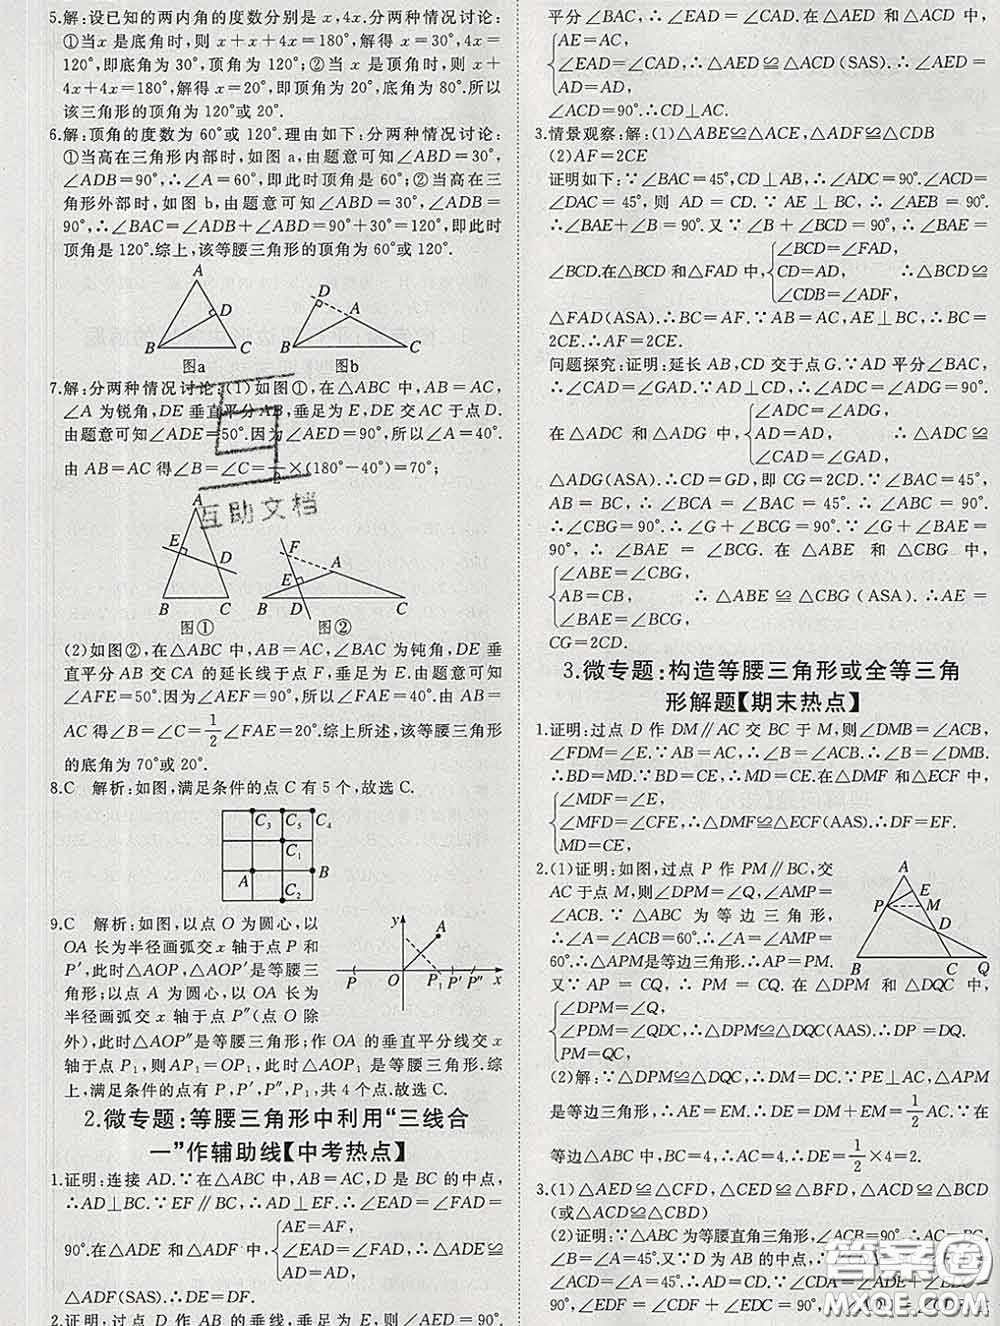 5.解:设已知的两内角的度数分别是x,4x.分两种情况讨论:
①当x是底角时,则x+x+4x=180°,解得x=30°,4x=
120°,即底角为30°,顶角为120°;②当x是顶角时,则x+
4x+4x=180°,解得x=20°,即顶角为20°,底角为80°.所以
该三角形的顶角为120°或20°.
6.解:顶角的度数为60°或120°.理由如下:分两种情况讨论:
①当高在三角形内部时,如图a,由题意可知∠ABD=30°,
∠ADB=90°,∴∠A=60°,即此时顶角是60°;②当高在三
角形外部时,如图b,由题意可知∠ABD=30°,∠ADB=
90°,∴∠BAC=∠ADB+∠ABD=90°+30°=120°,即此时
顶角是120°.综上,该等腰三角形的顶角为60°或120°.
A
D
B
C
图a
D
A
B
C
图b
7.解:分两种情况讨论:(1)如图①,在△ABC中,AB=AC,
∠A为锐角,DE垂直平分AB,垂足为E,DE交AC于点D.
由题意可知∠ADE=50°.因为∠AED=90°,所以∠A=40°.
由AB=AC得∠B=∠C=1/2×(180°-40°)=70°;
互助文档
A
E
D
B
C
图①
F
A
E
B
D
C
图②
(2)如图②,在△ABC中,AB=AC,∠BAC为钝角,DE垂
直平分AB交CA的延长线于点F,垂足为E.由题意可知
∠AFE=50°.因为∠AEF=90°,所以∠FAE=40°.由AB=
AC得∠B=∠C=1/2∠FAE=20°.综上所述,该等腰三角形
的底角为70°或20°.
8.C 解析:如图,满足条件的点C有5个,故选C.
C₃
C₅
C₄
C₁
A
B
C₂
9.C 解析:如图,以点O为圆心,以
OA长为半径画弧交x轴于点P和
P′,此时△AOP,△AOP′是等腰三角
形;以点A为圆心,以OA长为
半径画弧交x轴于点P″(点O除
外),此时△AOP″是等腰三角形;作OA的垂直平分线交x
轴于点P₁,则AP₁=OP₁,此时△AOP₁是等腰三角形.综
上,满足条件的点有P,P′,P″,P₁,共4个点.故选C.
y
A
P
O
P₁
P′
P″
x
2.微专题:等腰三角形中利用“三线合
一”作辅助线【中考热点】
1.证明:连接AD.∵在△ABC中,AB=AC,D是BC的中点,
∴AD⊥BC.∵EF∥BC,∴AD⊥EF.∴∠AED=∠AFD=
90°.在△ADE和△ADF中,{AE=AF,∠EAD=∠FAD,∴△ADE≌
AD=AD,
△ADF(SAS).∴DE=DF.
2.证明:过点D作AB的垂线,垂足为E.则∠AED=90°.
平分∠BAC,∴∠EAD=∠CAD.在△AED和△ACD中,
AE=AC,
∠EAD=∠CAD,∴△AED≌△ACD(SAS).∴∠AED=
AD=AD,
∠ACD=90°.∴CD⊥AC.
3.情景观察:解:(1)△ABE≌△ACE,△ADF≌△CDB
(2)AF=2CE
证明如下:∵∠BAC=45°,CD⊥AB,∴∠ADC=90°.∠ACD=
∠DAC=45°,则AD=CD.∵AE⊥BC,∴∠AEB=90°.
∴∠BAE+∠B=90°.又∵∠B+∠BCD=90°,∴∠BAE=
∠BCD.在△BCD和△FAD中,{∠BCD=∠FAD,
CD=AD, ∴△BCD≌
∠CDB=∠ADF,
△FAD(ASA).∴BC=AF.∵AB=AC,AE⊥BC,∴BC=
2CE.∴AF=2CE.
问题探究:证明:延长AB,CD交于点G.∵AD平分∠BAC,
∴∠CAD=∠GAD.∵AD⊥CD,∴∠ADC=∠ADG=90°.
在△ADC和△ADG中,{∠ADC=∠ADG,
AD=AD, ∴△ADC≌
∠CAD=∠GAD,
△ADG(ASA).∴CD=GD,即CG=2CD.∵∠BAC=45°,
AB=BC,∴∠BCA=∠BAC=45°.∴∠ABC=90°.
∴∠CBG=90°.∴∠G+∠BCG=90°.∵∠G+∠BAE=
90°,∴∠BAE=∠BCG.在△ABE和△CBG中,
∠ABE=∠CBG,
AB=CB, ∴△ABE≌△CBG(ASA).∴AE=
∠BAE=∠BCG,
CG=2CD.
3.微专题:构造等腰三角形或全等三角
形解题【期末热点】
1.证明:过点D作DM∥AC交BC于M,则∠DMB=∠ACB,
∠FDM=∠E.∵AB=AC,∴∠B=∠ACB.∴∠B=∠DMB.
∴BD=MD.∵BD=CE,∴MD=CE.在△DMF和△ECF中,
∠MDF=∠E,
∠MFD=∠CFE,∴△DMF≌△ECF(AAS).∴DF=EF.
MD=CE,
2.(1)证明:如图,过点P作PM∥BC,交
AC于点M,则∠DPM=∠Q,∠AMP=
∠ACB.∵△ABC为等边三角形,
∴∠A=∠ACB=60°.∴∠AMP=
60°.∴△APM是等边三角形.∴AP=PM.
又∵AP=CQ,∴PM=CQ.在△DPM和△DQC中,
∠DPM=∠Q,
∠PDM=∠QDC,∴△DPM≌△DQC(AAS).∴DP=DQ.
PM=QC,
A
E
P
M
D
B
C
Q
(2)解:∵△DPM≌△DQC,∴DM=DC.∵PE⊥AC,△APM是
等边三角形,∴AE=EM.∴DE=DM+EM=1/2AC.∵在
等边△ABC中,BC=4,∴AC=4.∴DE=1/2×4=2.
3.(1)△AED≌△CFD,△CED≌△BFD,△ACD≌△BCD
(或△ACD≌△CBD)
(2)证明:∵△ABC为等腰直角三角形,∠ACB=90°.∴AC=BC,
∠B=∠A=45°.又∵D为AB的中点,
答案圈
MXQE.COM